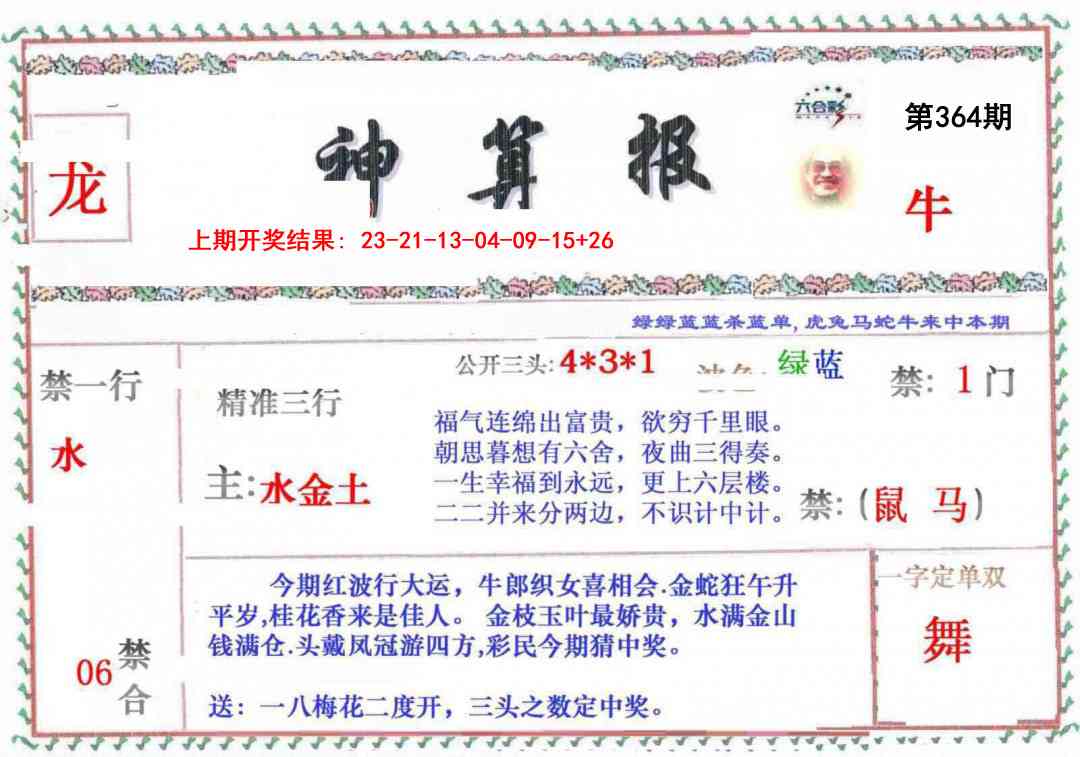 六合彩
第364期
神算报
龙
牛
上期开奖结果: 23-21-13-04-09-15+26
绿绿蓝蓝杀蓝单, 虎兔马蛇牛来中本期
禁一行
水
精准三行
主:水金土
公开三头:4*3*1
绿蓝
禁: 1门
福气连绵出富贵，欲穷千里眼。
朝思暮想有六舍，夜曲三得奏。
一生幸福到永远，更上六层楼。
二二并来分两边，不识计中计。
禁:(鼠 马)
今期红波行大运，牛郎织女喜相会.金蛇狂午升
平岁,桂花香来是佳人。金枝玉叶最娇贵，水满金山
钱满仓.头戴凤冠游四方,彩民今期猜中奖。
送：一八梅花二度开，三头之数定中奖。
一字定单双
舞
06
禁合